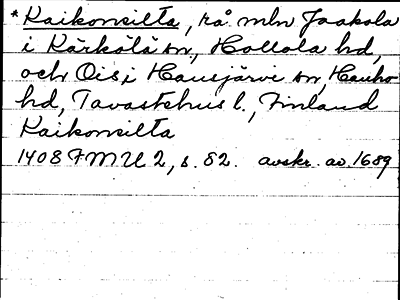 *Kaikonsilta, rå mln Jaakola
i Kärkölä sn, Hollola hd,
och Ois, i Hausjärvi sn, Hauho
hd, Tavastehus l., Finland
Kaikonsilta
1408 FMU 2, s. 52. avskr. av 1689